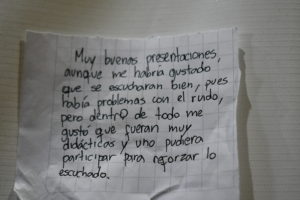 Muy buenas presentaciones,
aunque me habría gustado
que se escucharan bien, pues
había problemas con el ruido,
pero dentro de todo me
gustó que fueran muy
didácticas y uno pudiera
participar para reforzar lo
escuchado.